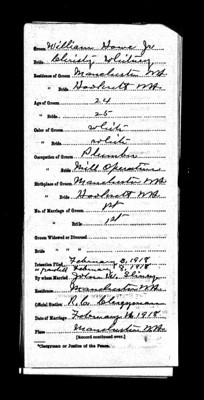 Groom William Howe Jr
Bride Christy Whitney
Residence of Groom Manchester N.H.
" Bride Hooksett N.H.
Age of Groom 24
" Bride 25
Color of Groom White
" Bride White
Occupation of Groom Plumber
" Bride Mill Operative
Birthplace of Groom Manchester N.H.
" Bride Hooksett N.H.
No. of Marriage of Groom 1st
" Bride 1st
Groom Widowed or Divorced
Bride " " "
Intention Filed February 3, 1918
February 8, 1918
By whom Married John
Residence Manchester N.H.
Official Station R.C. Clergyman
Date of Marriage February 1918
Place Manchester N.H.
(Record continued over.)
*Clergyman or Justice of the Peace.